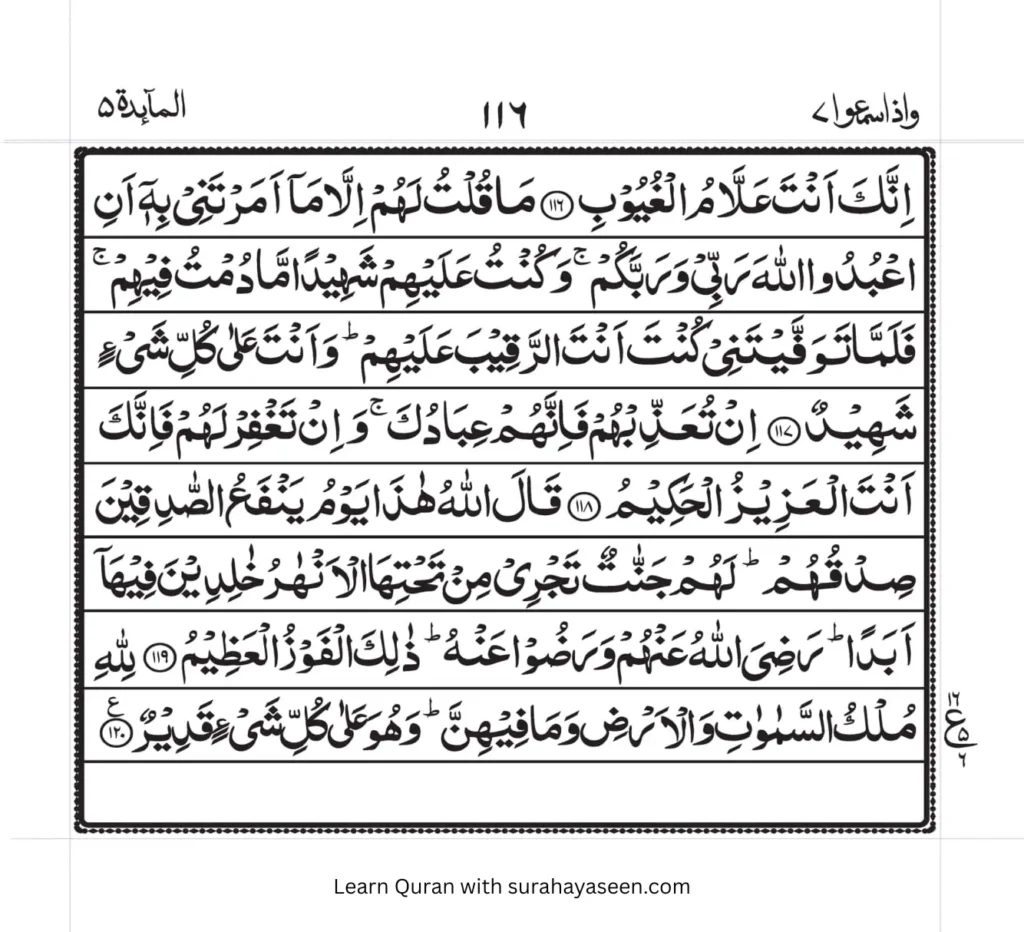 واذاسمعوا ٧
١١٦
المآئدة ٥
اِنَّكَ اَنْتَ عَلَّامُ الْغُیُوْبِ ﴿۱۱۶﴾ مَا قُلْتُ لَهُمْ اِلَّا مَاۤ اَمَرْتَنِیْ بِهٖۤ اَنِ
اعْبُدُوا اللّٰهَ رَبِّیْ وَ رَبَّكُمْ ۚ وَ كُنْتُ عَلَیْهِمْ شَهِیْدًا مَّا دُمْتُ فِیْهِمْ ۚ
فَلَمَّا تَوَفَّیْتَنِیْ كُنْتَ اَنْتَ الرَّقِیْبَ عَلَیْهِمْ ؕ وَ اَنْتَ عَلٰی كُلِّ شَیْءٍ
شَهِیْدٌ ﴿۱۱۷﴾ اِنْ تُعَذِّبْهُمْ فَاِنَّهُمْ عِبَادُكَ ۚ وَ اِنْ تَغْفِرْ لَهُمْ فَاِنَّكَ
اَنْتَ الْعَزِیْزُ الْحَكِیْمُ ﴿۱۱۸﴾ قَالَ اللّٰهُ هٰذَا یَوْمُ یَنْفَعُ الصّٰدِقِیْنَ
صِدْقُهُمْ ؕ لَهُمْ جَنّٰتٌ تَجْرِیْ مِنْ تَحْتِهَا الْاَنْهٰرُ خٰلِدِیْنَ فِیْهَاۤ
اَبَدًا ؕ رَضِیَ اللّٰهُ عَنْهُمْ وَ رَضُوْا عَنْهُ ؕ ذٰلِكَ الْفَوْزُ الْعَظِیْمُ ﴿۱۱۹﴾ لِلّٰهِ
مُلْكُ السَّمٰوٰتِ وَ الْاَرْضِ وَ مَا فِیْهِنَّ ؕ وَ هُوَ عَلٰی كُلِّ شَیْءٍ قَدِیْرٌ ﴿۱۲۰﴾ ع
١٦
ع ٥
٦
Learn Quran with surahayaseen.com